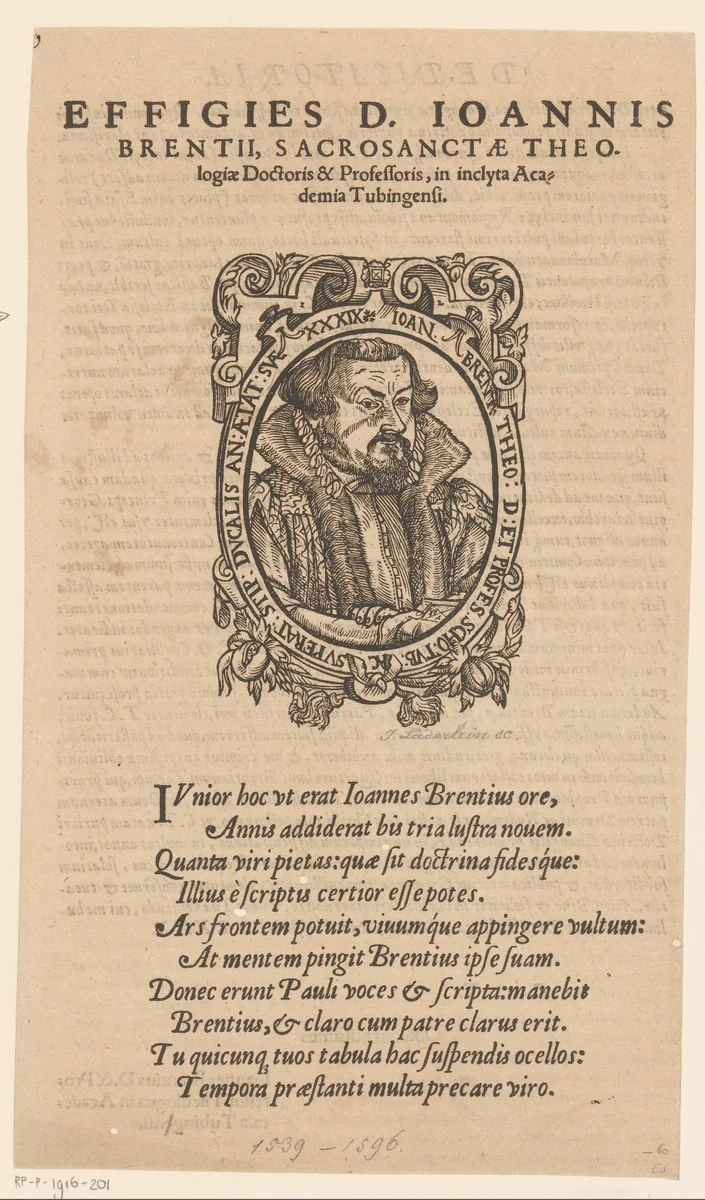 EFFIGIES D. IOANNIS
BRENTII, SACROSANCTÆ THEO-
logiæ Doctoris & Profeſſoris, in inclyta Aca⸗
demia Tubingenſi.
IOAN. BRENT. THEO: D: ET PROFES. SCHO. TVB: AC SVPERAT: STIP: DVCALIS AN: ÆTAT: SVÆ XXXIX
J. Laderlein sc
IVnior hoc vt erat Ioannes Brentius ore,
Annis addiderat bis tria luſtra nouem.
Quanta viri pietas: quæ ſit doctrina fidesq́ue:
Illius è ſcriptis certior eſſe potes.
Ars frontem potuit, viuumq́ue appingere vultum:
At mentem pingit Brentius ipſe ſuam.
Donec erunt Pauli voces & ſcripta: manebit
Brentius, & claro cum patre clarus erit.
Tu quicunq; tuos tabula hac ſuſpendis ocellos:
Tempora præſtanti multa precare viro.
1539 – 1596.
RP-P-1916-201
–60
60